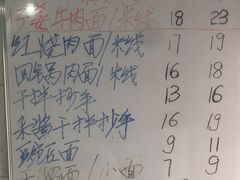 牛肉面/米线 18 23
红烧肉面/米线 17 19
回锅肉面/米线 16 18
干拌抄手 13 16
杂酱干拌抄手 16 19
豌豆面 9 11
面/小面 7 9